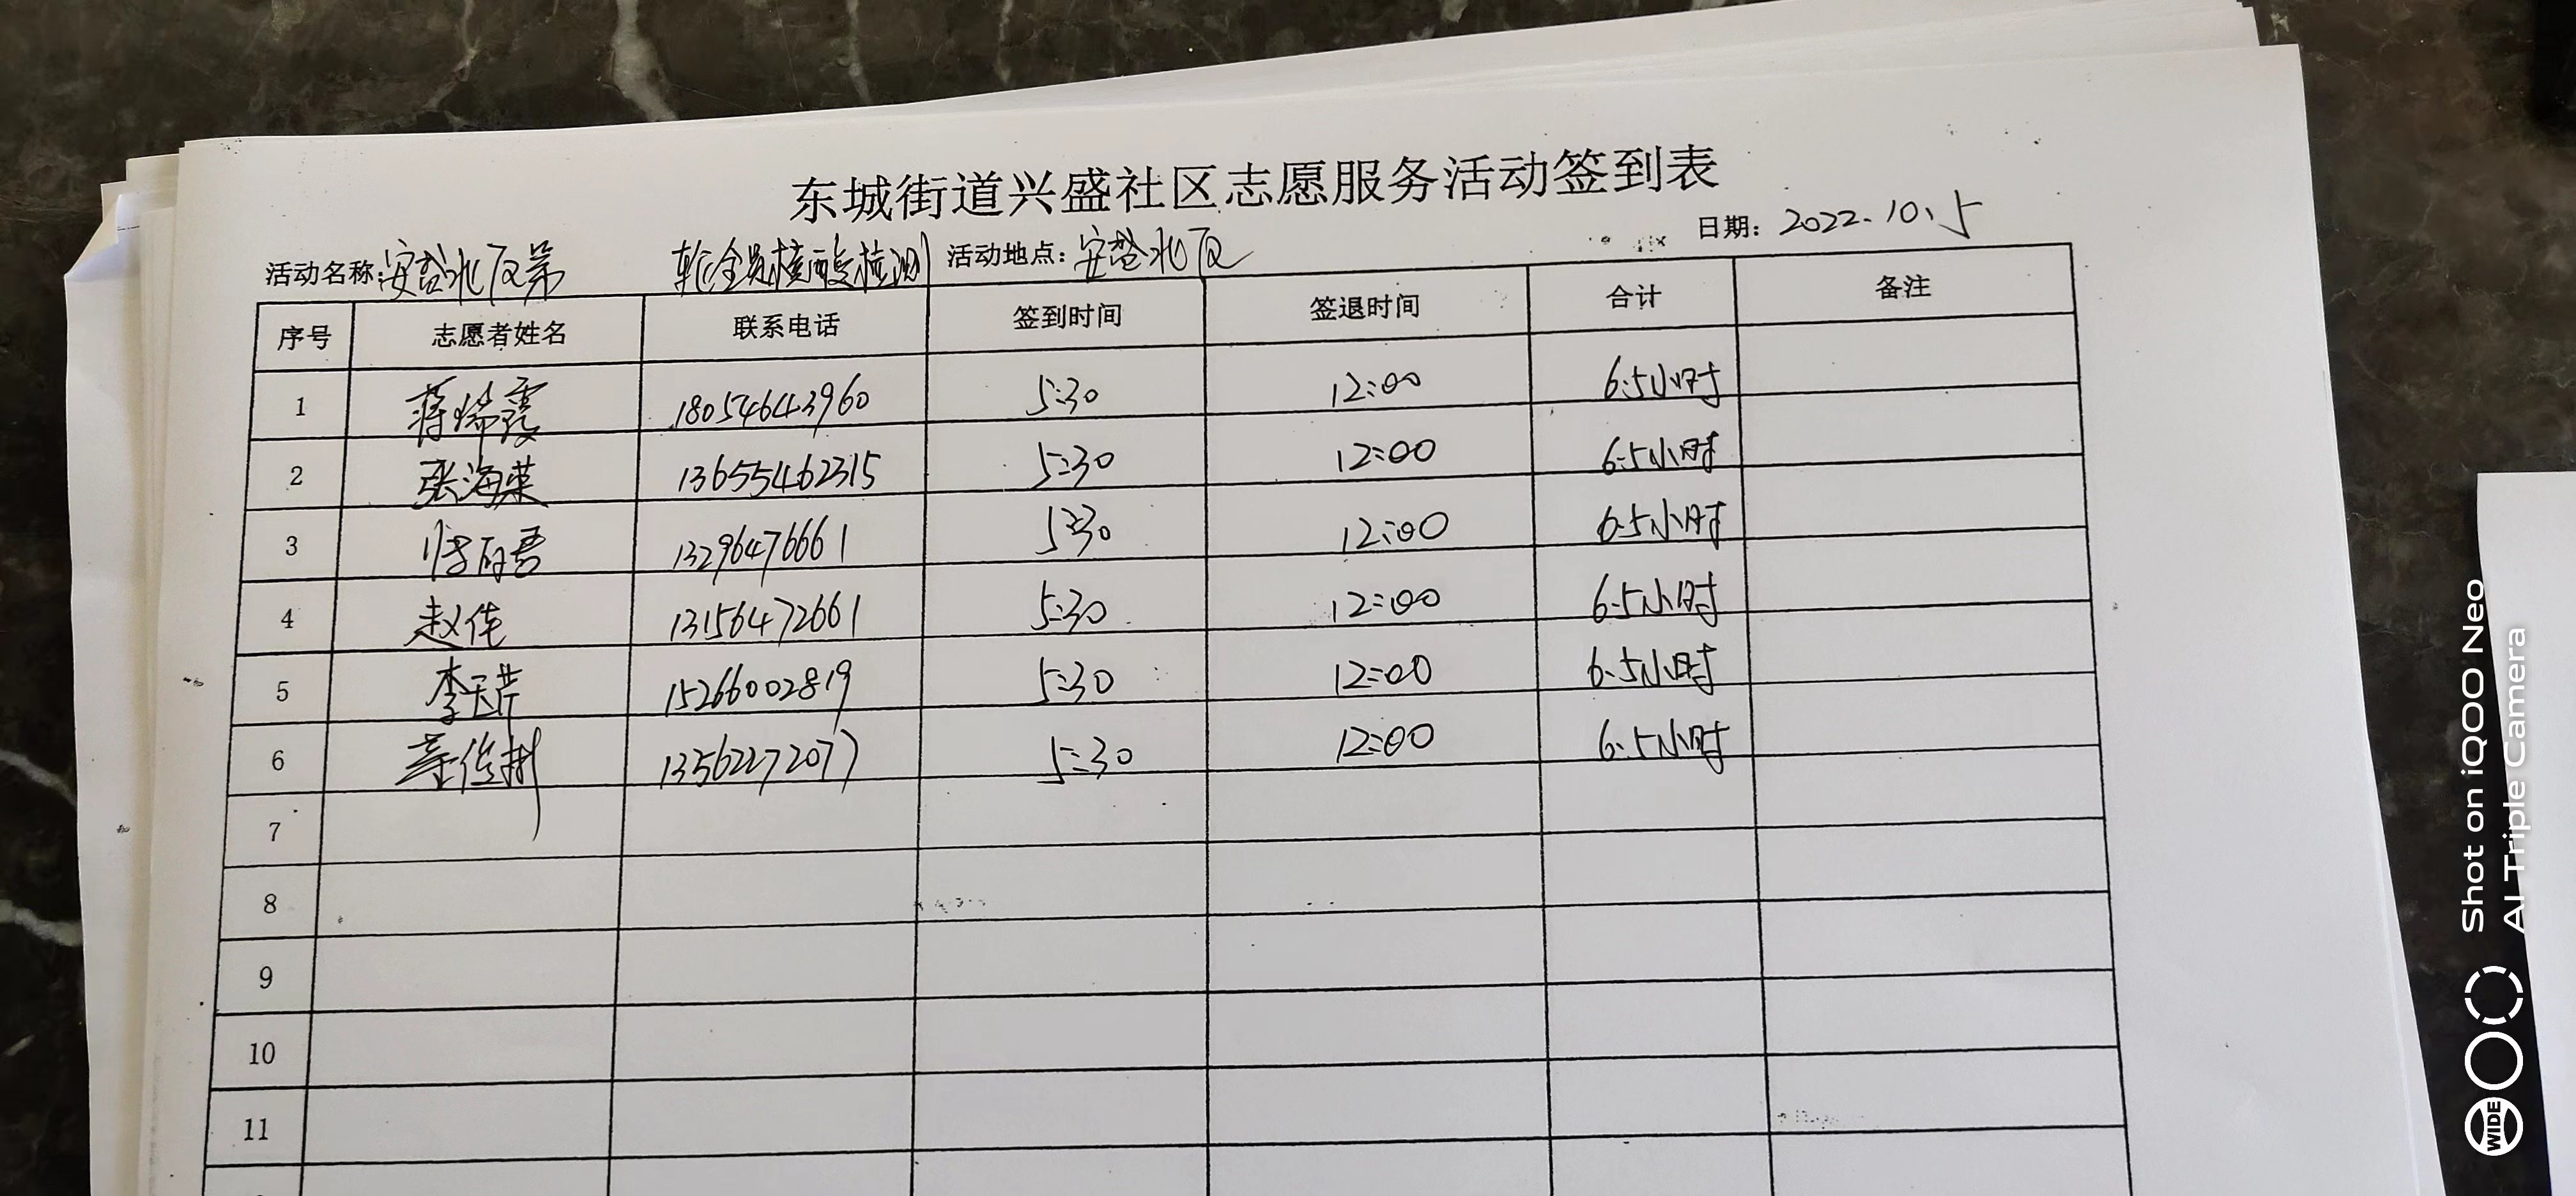 东城街道兴盛社区志愿服务活动签到表
活动名称:安盘北区第 轮全员核酸检测 活动地点:安盘北区 日期: 2022.10.5
序号 志愿者姓名 联系电话 签到时间 签退时间 合计 备注
1 蒋瑞霞 18054643960 5:30 12:00 6.5小时
2 张海荣 13655462315 5:30 12:00 6.5小时
3 13296476661 5:30 12:00 6.5小时
4 赵伟 13156472661 5:30 12:00 6.5小时
5 李玉芹 15266002819 5:30 12:00 6.5小时
6 13562272077 5:30 12:00 6.5小时
7
8
9
10
11
Shot on iQOO Neo
AI Triple Camera
WIDE